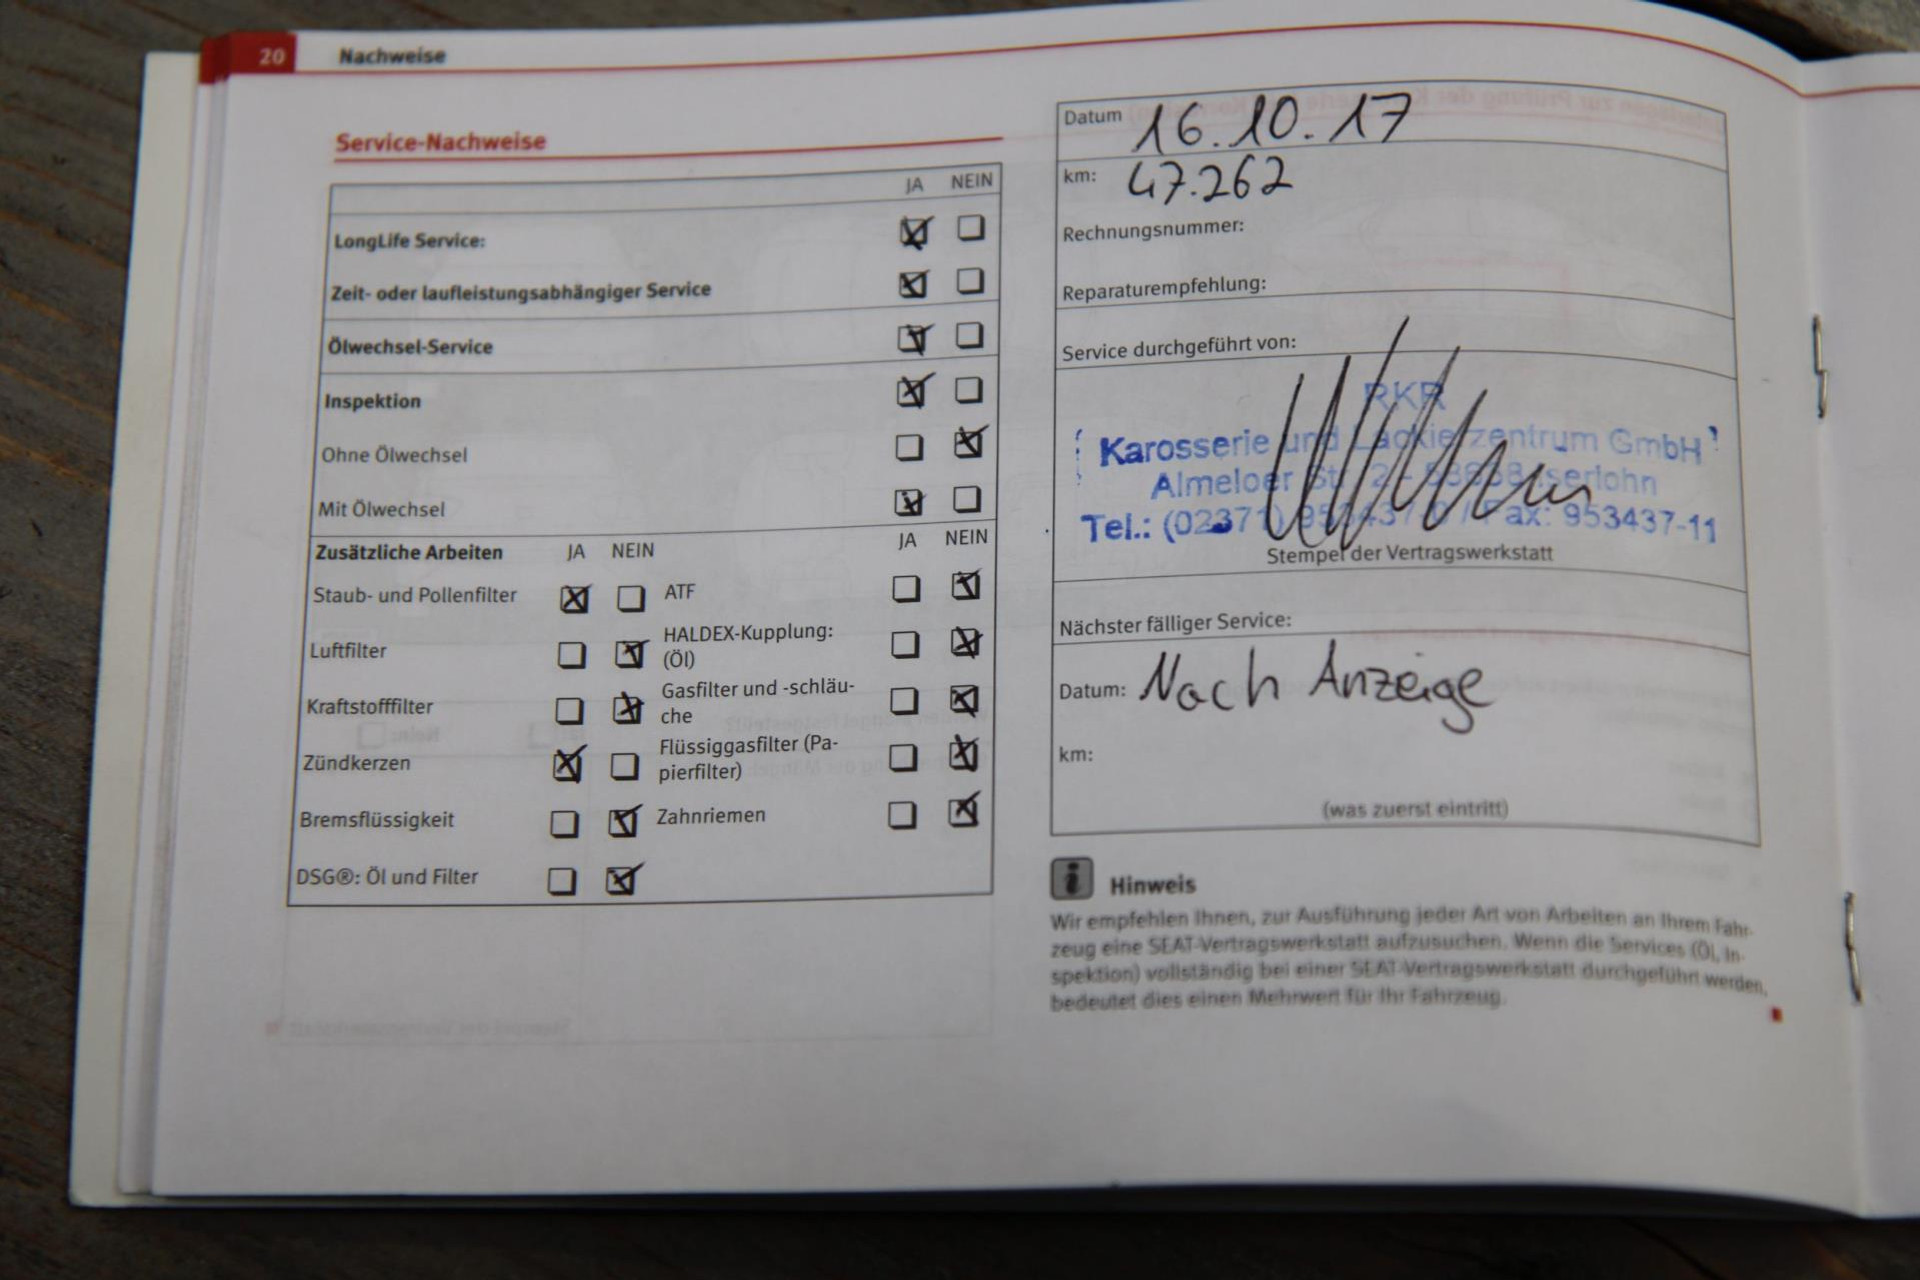 20 Nachweise
Service-Nachweise
JA NEIN
LongLife Service:
Zeit- oder laufleistungsabhängiger Service
Ölwechsel-Service
Inspektion
Ohne Ölwechsel
Mit Ölwechsel
Zusätzliche Arbeiten JA NEIN JA NEIN
Staub- und Pollenfilter ATF
Luftfilter HALDEX-Kupplung:
(Öl)
Kraftstofffilter Gasfilter und -schläu-
che
Zündkerzen Flüssiggasfilter (Pa-
pierfilter)
Bremsflüssigkeit Zahnriemen
DSG®: Öl und Filter
Datum 16.10.17
km: 47.262
Rechnungsnummer:
Reparaturempfehlung:
Service durchgeführt von:
RKR
Karosserie und Lackierzentrum GmbH
Almeloer Str. 2 - Iserlohn
Tel.: (02371) 953437-0 / Fax: 953437-11
Stempel der Vertragswerkstatt
Nächster fälliger Service:
Datum: Nach Anzeige
km:
(was zuerst eintritt)
i Hinweis
Wir empfehlen Ihnen, zur Ausführung jeder Art von Arbeiten an Ihrem Fahr-
zeug eine SEAT-Vertragswerkstatt aufzusuchen. Wenn die Services (Öl, In-
spektion) vollständig bei einer SEAT-Vertragswerkstatt durchgeführt werden,
bedeutet dies einen Mehrwert für Ihr Fahrzeug.